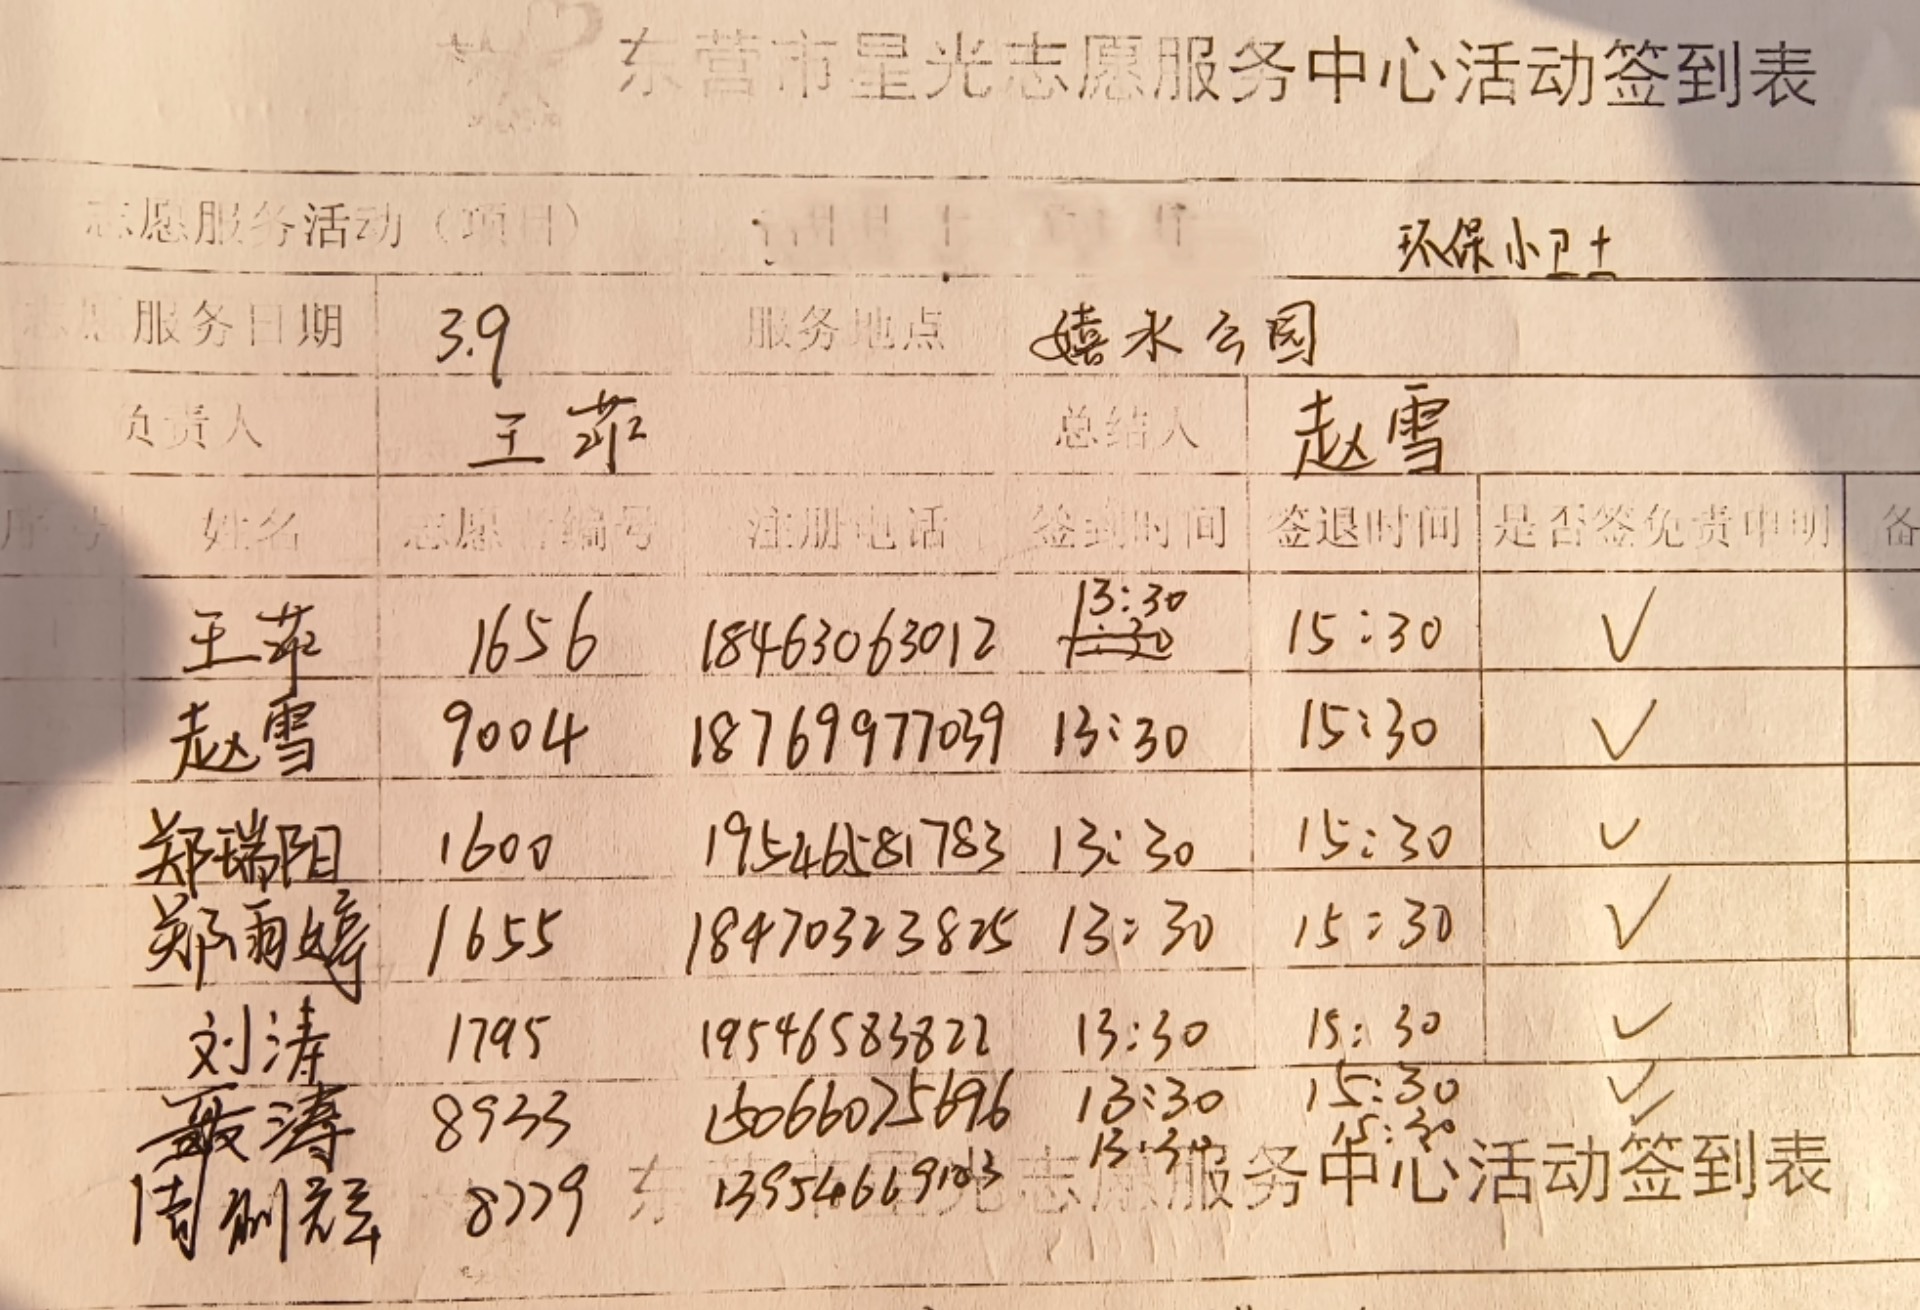 东营市星光志愿服务中心活动签到表
志愿服务活动（项目） 环保小卫士
志愿服务日期 3.9 服务地点 嬉水公园
负责人 王茈 总结人 赵雪
序号 姓名 志愿者编号 注册电话 签到时间 签退时间 是否签免责申明 备
王茈 1656 18463063012 13:30 15:30 ✓
赵雪 9004 18769977039 13:30 15:30 ✓
郑瑞阳 1600 19546581783 13:30 15:30 ✓
郑雨婷 1655 18470323825 13:30 15:30 ✓
刘涛 1795 19546583822 13:30 15:30 ✓
聂涛 8933 15066025696 13:30 15:30 ✓
8229 13:30 15:30 ✓
东营市星光志愿服务中心活动签到表